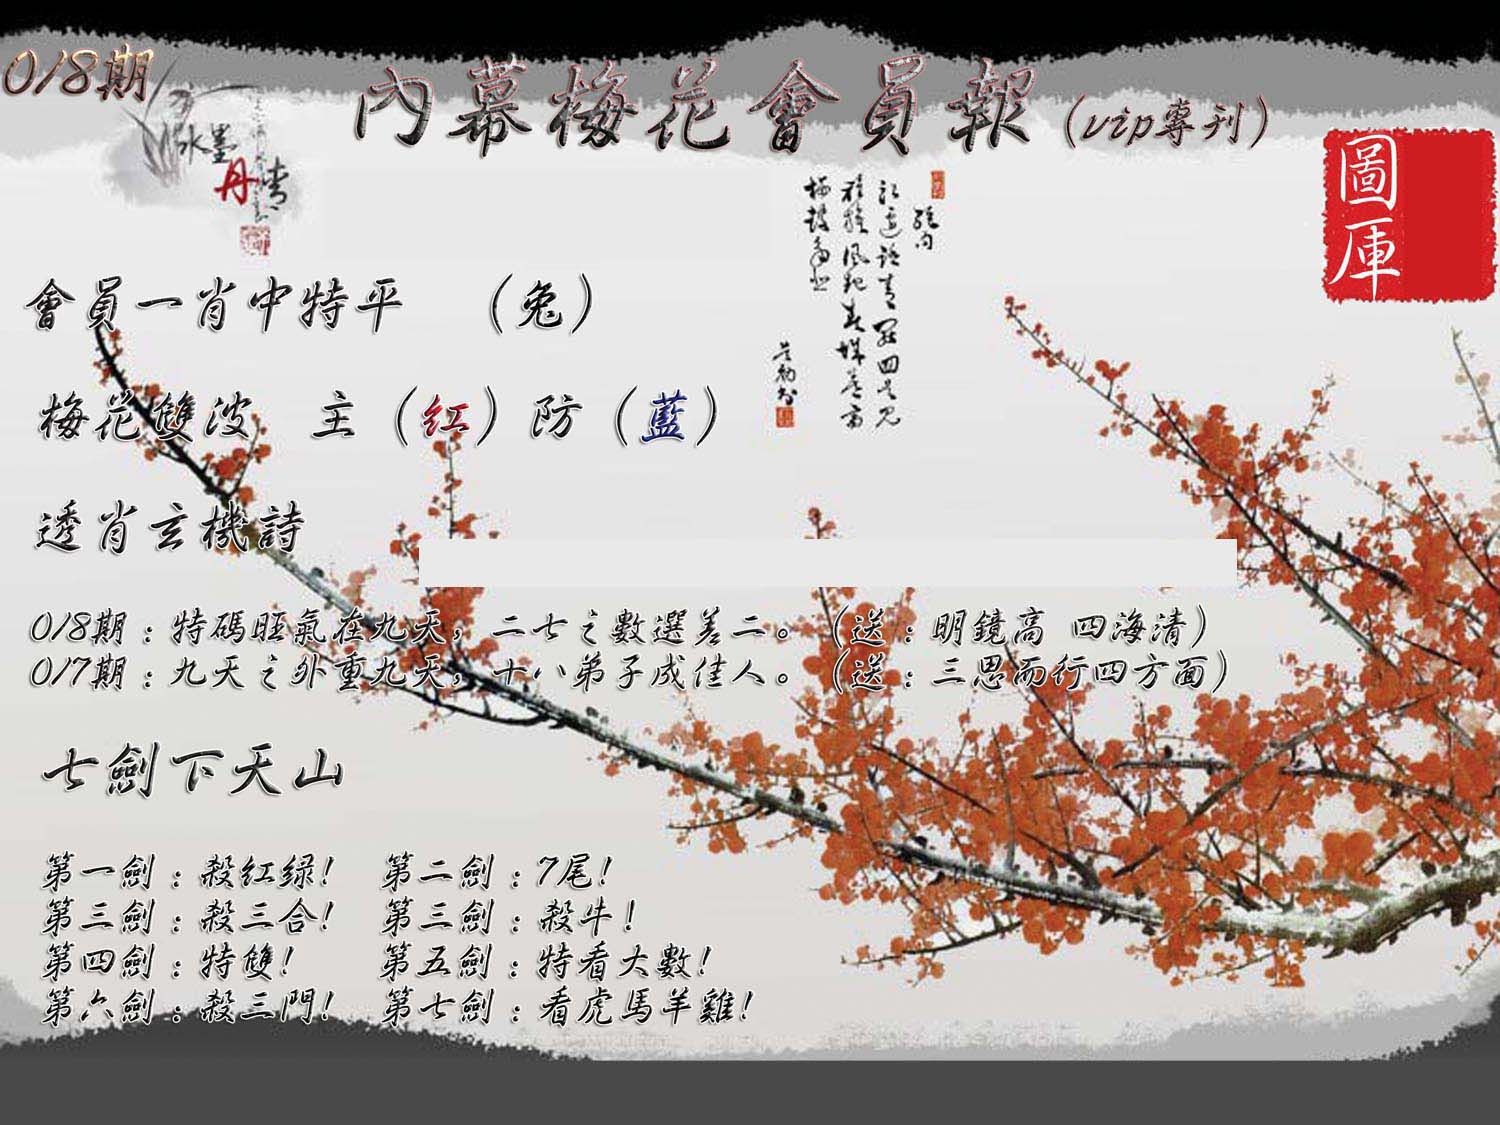 018期
內幕梅花會員報（vip專刊）
水墨
丹情
圖庫
會員一肖中特平　（兔）
梅花雙波　主（红）防（藍）
透肖玄機詩
018期：特碼旺氣在九天，二七之數選差二。（送：明鏡高 四海清）
017期：九天之外重九天，十八弟子成佳人。（送：三思而行四方面）
七劍下天山
第一劍：殺红绿！　第二劍：7尾！
第三劍：殺三合！　第三劍：殺牛！
第四劍：特雙！　第五劍：特看大數！
第六劍：殺三門！　第七劍：看虎馬羊雞！